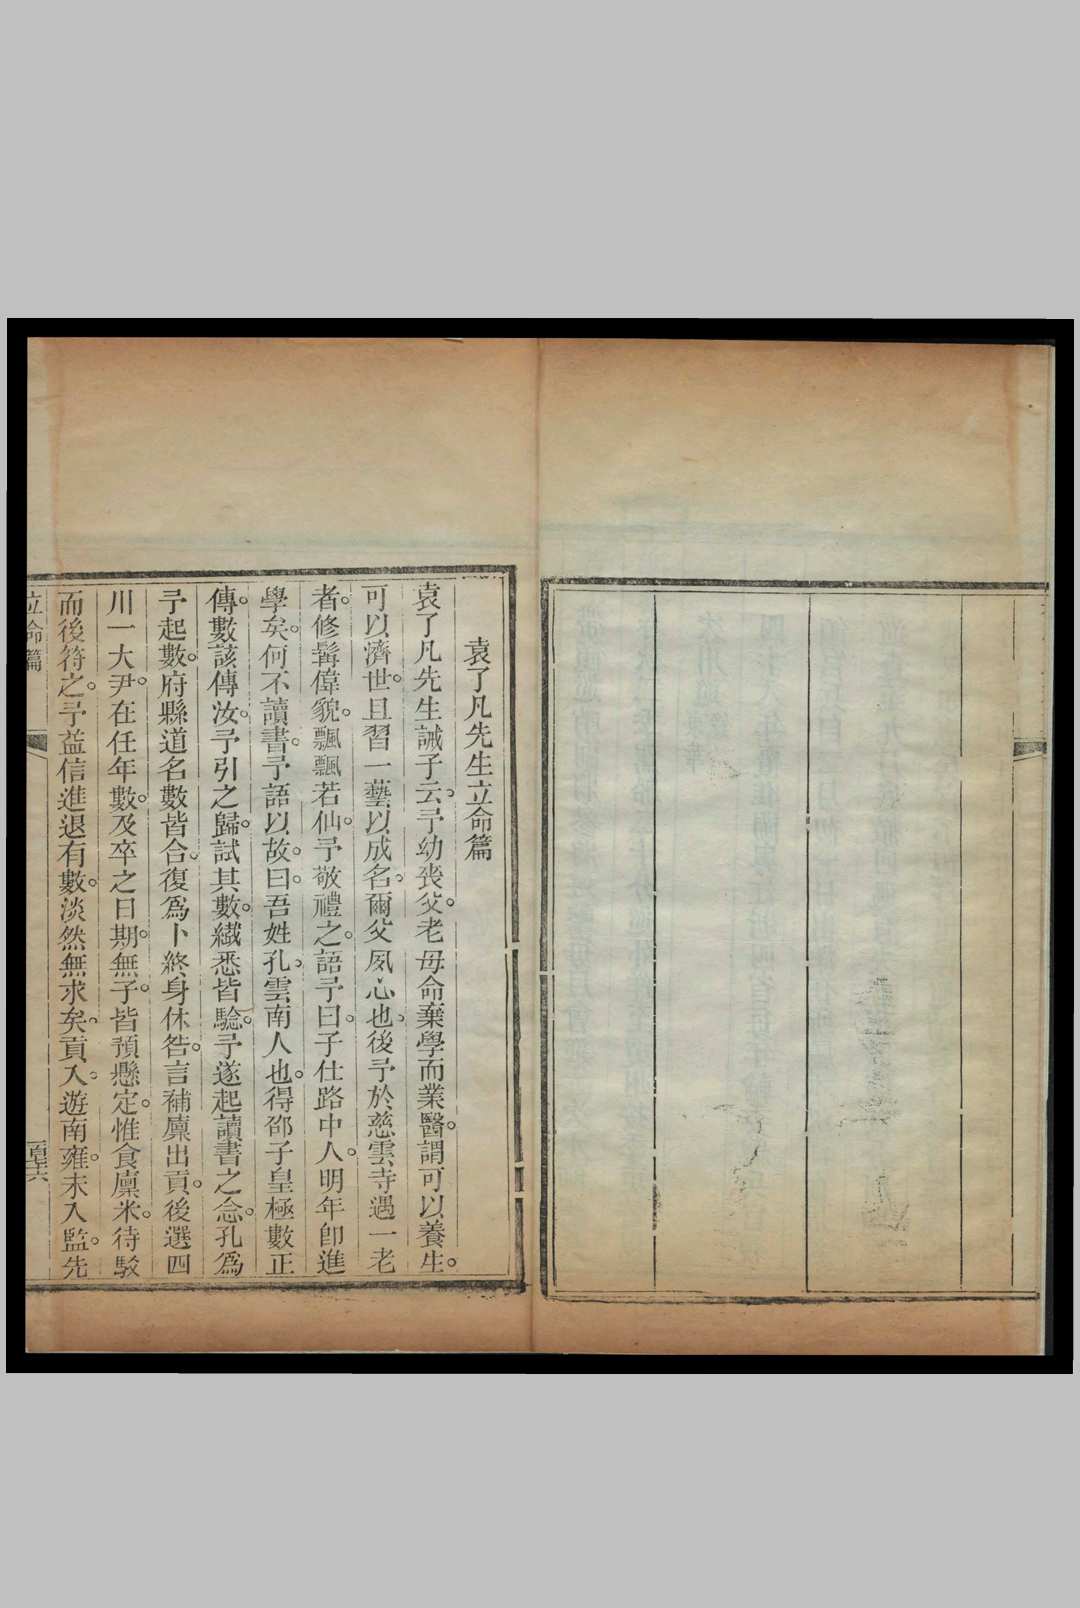 袁了凡先生立命篇
袁了凡先生誡子云。予幼喪父。老母命棄學而業醫。謂可以養生。
可以濟世。且習一藝以成名。爾父夙心也。後予於慈雲寺遇一老
者。修髯偉貌。飄飄若仙。予敬禮之。語予曰。子仕路中人。明年卽進
學矣。何不讀書。予語以故。曰。吾姓孔。雲南人也。得邵子皇極數正
傳。數該傳汝。予引之歸。試其數。纖悉皆驗。予遂起讀書之念。孔爲
予起數。府縣道名數皆合。復爲卜終身休咎。言補廩出貢。後選四
川一大尹。在任年數。及卒之日期。無子。皆預懸定。惟食廩米。待駁
而後符之。予益信進退有數。淡然無求矣。貢入。遊南雍。未入監。先
立命篇